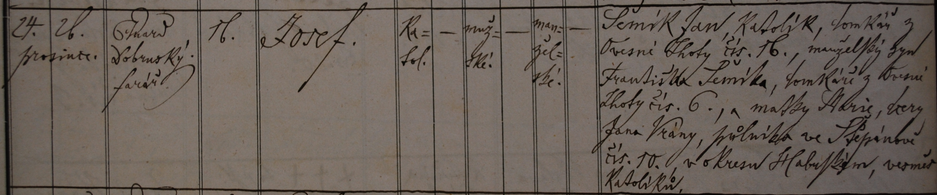 24. 26. prosince.
Eduard
Dobruský.
farář.
16.
Josef.
Ka=
tol.
muž=
ské.
man=
žel=
ské.
Šemík Jan, Katolík, tomkář z
Ovesné Lhoty čís. 16., manželský syn
Františka Šemíka, tomkáře z Ovesné
Lhoty čís. 6., a matky Marie, dcery
Jana Vrány, půlníka ve Štěpánově
čís. 10. v okresu Haberském, vesměs
Katolíků.